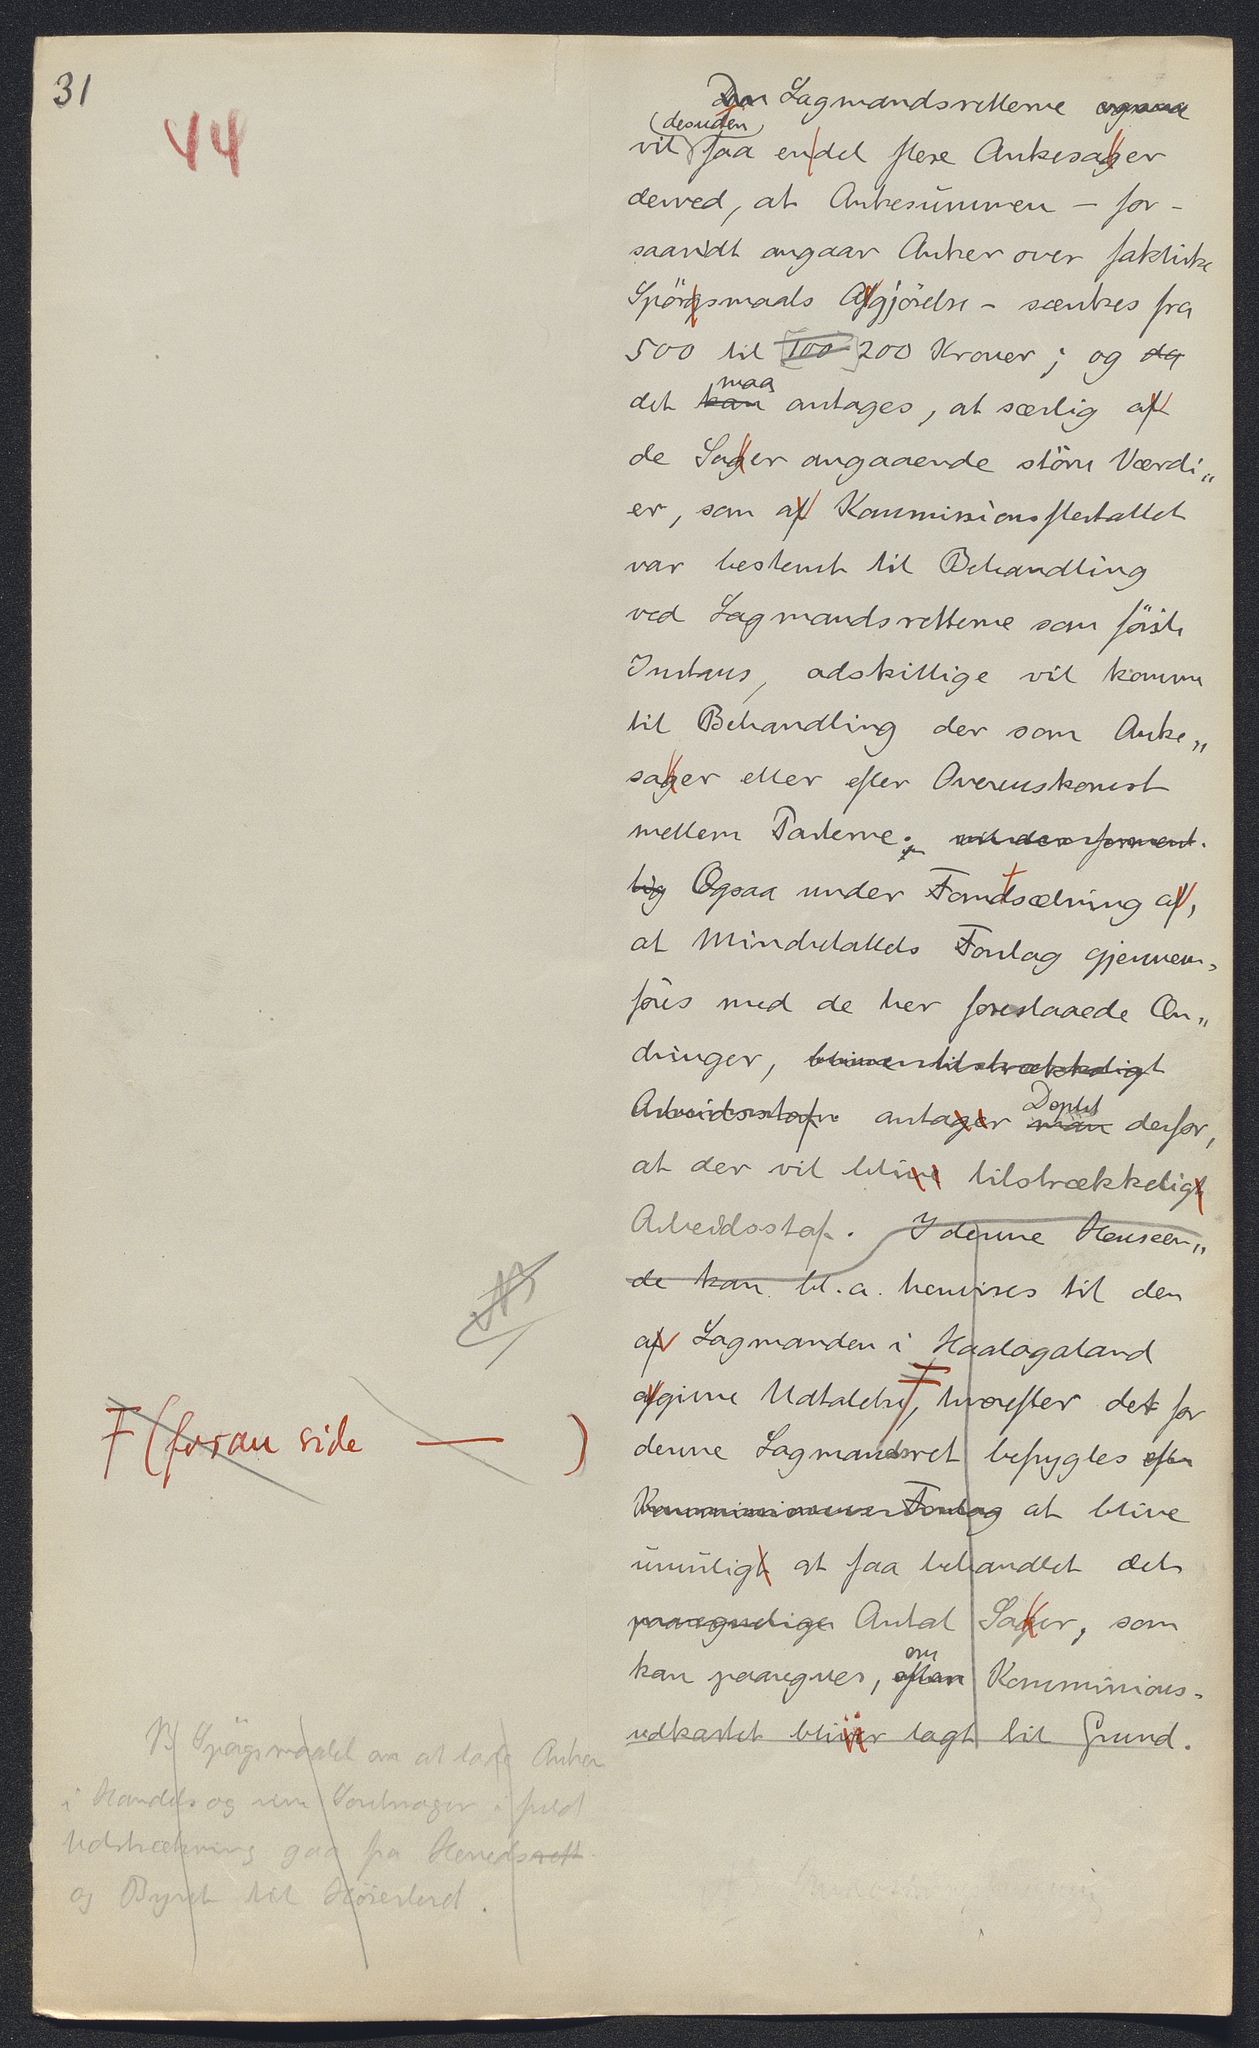 31
44
Den Lagmandsretterne ogsaa
(desuden)
vil faa en del flere Ankesager
derved, at Ankesummen – for-
saavidt angaar Anker over faktiske
Spörgsmaals Afgjörelse – sænkes fra
500 til [100] 200 Kroner; og da
maa
det kan antages, at særlig af
de Sager angaaende större Værdi„
er, som af Kommissionsflertallet
var bestemt til Behandling
ved Lagmandsretterne som förste
Instans, adskillige vil komme
til Behandling der som Anke„
sager eller efter Overenskomst
mellem Parterne. vil der forment-
lig Ogsaa under Forudsætning af,
at Mindretallets Forslag gjennem-
föres med de her foreslaaede Æn„
dringer, bliver tilstrækkeligt
Arbeidsstof. antager man derfor,
Deptet
at der vil blive tilstrækkeligt
Arbeidsstof. I denne Henseen„
de kan bl. a. henvises til den
af Lagmanden i Haalogaland
afgivne Udtalelse F, hvorefter det for
denne Lagmandsret befrygtes efter
Kommissionens Forslag at blive
umuligt at faa behandlet det
paaregnelige Antal Sager, som
om
kan paaregnes, efter Kommissions-
udkastet bliver lagt til Grund.
F (foran side — )
B Spörgsmaalet om at lade Anker
i Handels og Sönæringer i fuld
Udstrækning gaa fra Herredsrett
og Byret til Höiesteret.